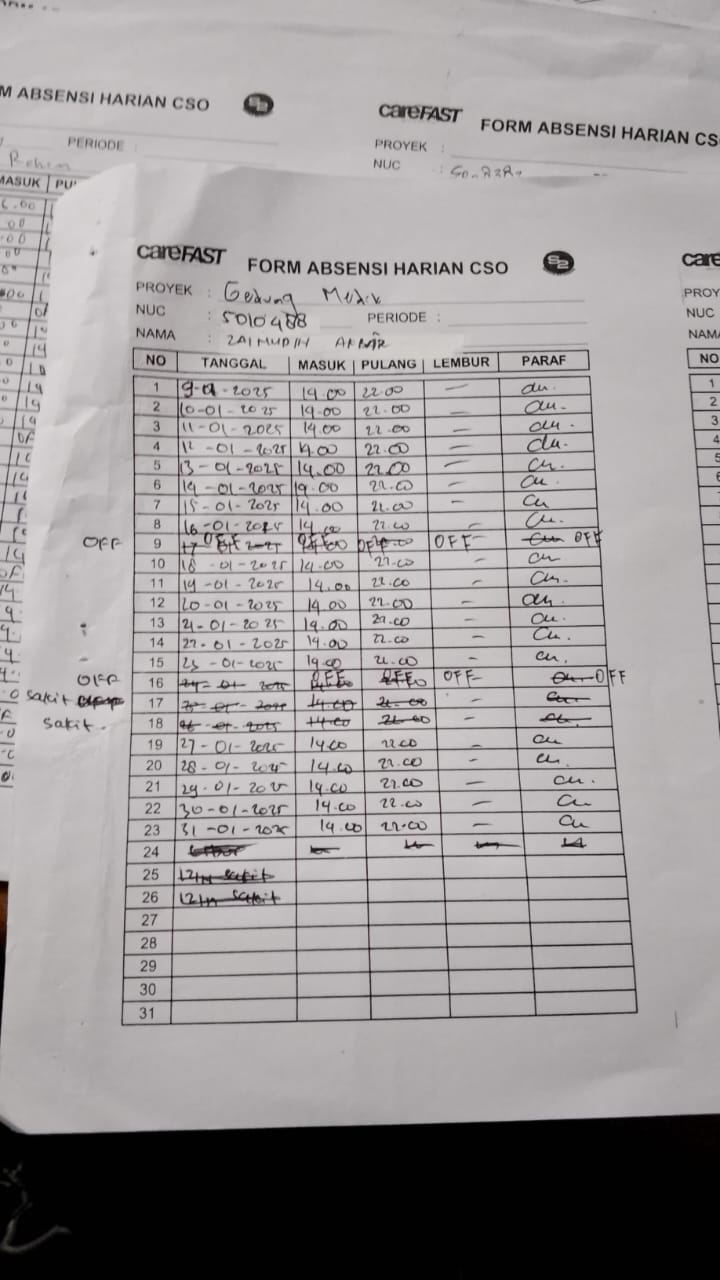 M ABSENSI HARIAN CSO S2
PERIODE :
MASUK PU
careFAST FORM ABSENSI HARIAN CS
PROYEK :
NUC :
careFAST FORM ABSENSI HARIAN CSO S2
PROYEK : Gedung Medik
NUC : 5010488 PERIODE :
NAMA : ZAINUDIN AKBAR
NO TANGGAL MASUK PULANG LEMBUR PARAF
1 9-01-2025 14.00 22.00 —
2 10-01-2025 14.00 22.00 —
3 11-01-2025 14.00 22.00 —
4 12-01-2025 14.00 22.00 —
5 13-01-2025 14.00 22.00 —
6 14-01-2025 14.00 22.00 —
7 15-01-2025 14.00 22.00 —
8 16-01-2025 14.00 22.00 —
OFF 9 17 OFF 2025 OFF OFF OFF OFF
10 18-01-2025 14.00 22.00 —
11 19-01-2025 14.00 22.00 —
12 20-01-2025 14.00 22.00 —
13 21-01-2025 14.00 22.00 —
14 22-01-2025 14.00 22.00 —
15 23-01-2025 14.00 22.00 —
OFF 16 24-01-2025 OFF OFF OFF OFF
sakit 17 25-01-2025 14.00 22.00 —
sakit. 18 26-01-2025 14.00 22.00 —
19 27-01-2025 14.00 22.00 —
20 28-01-2025 14.00 22.00 —
21 29-01-2025 14.00 22.00 —
22 30-01-2025 14.00 22.00 —
23 31-01-2025 14.00 22.00 —
24
25 izin sakit
26 izin sakit
27
28
29
30
31
care
PROY
NUC
NAMA
NO
1
2
3
4
5